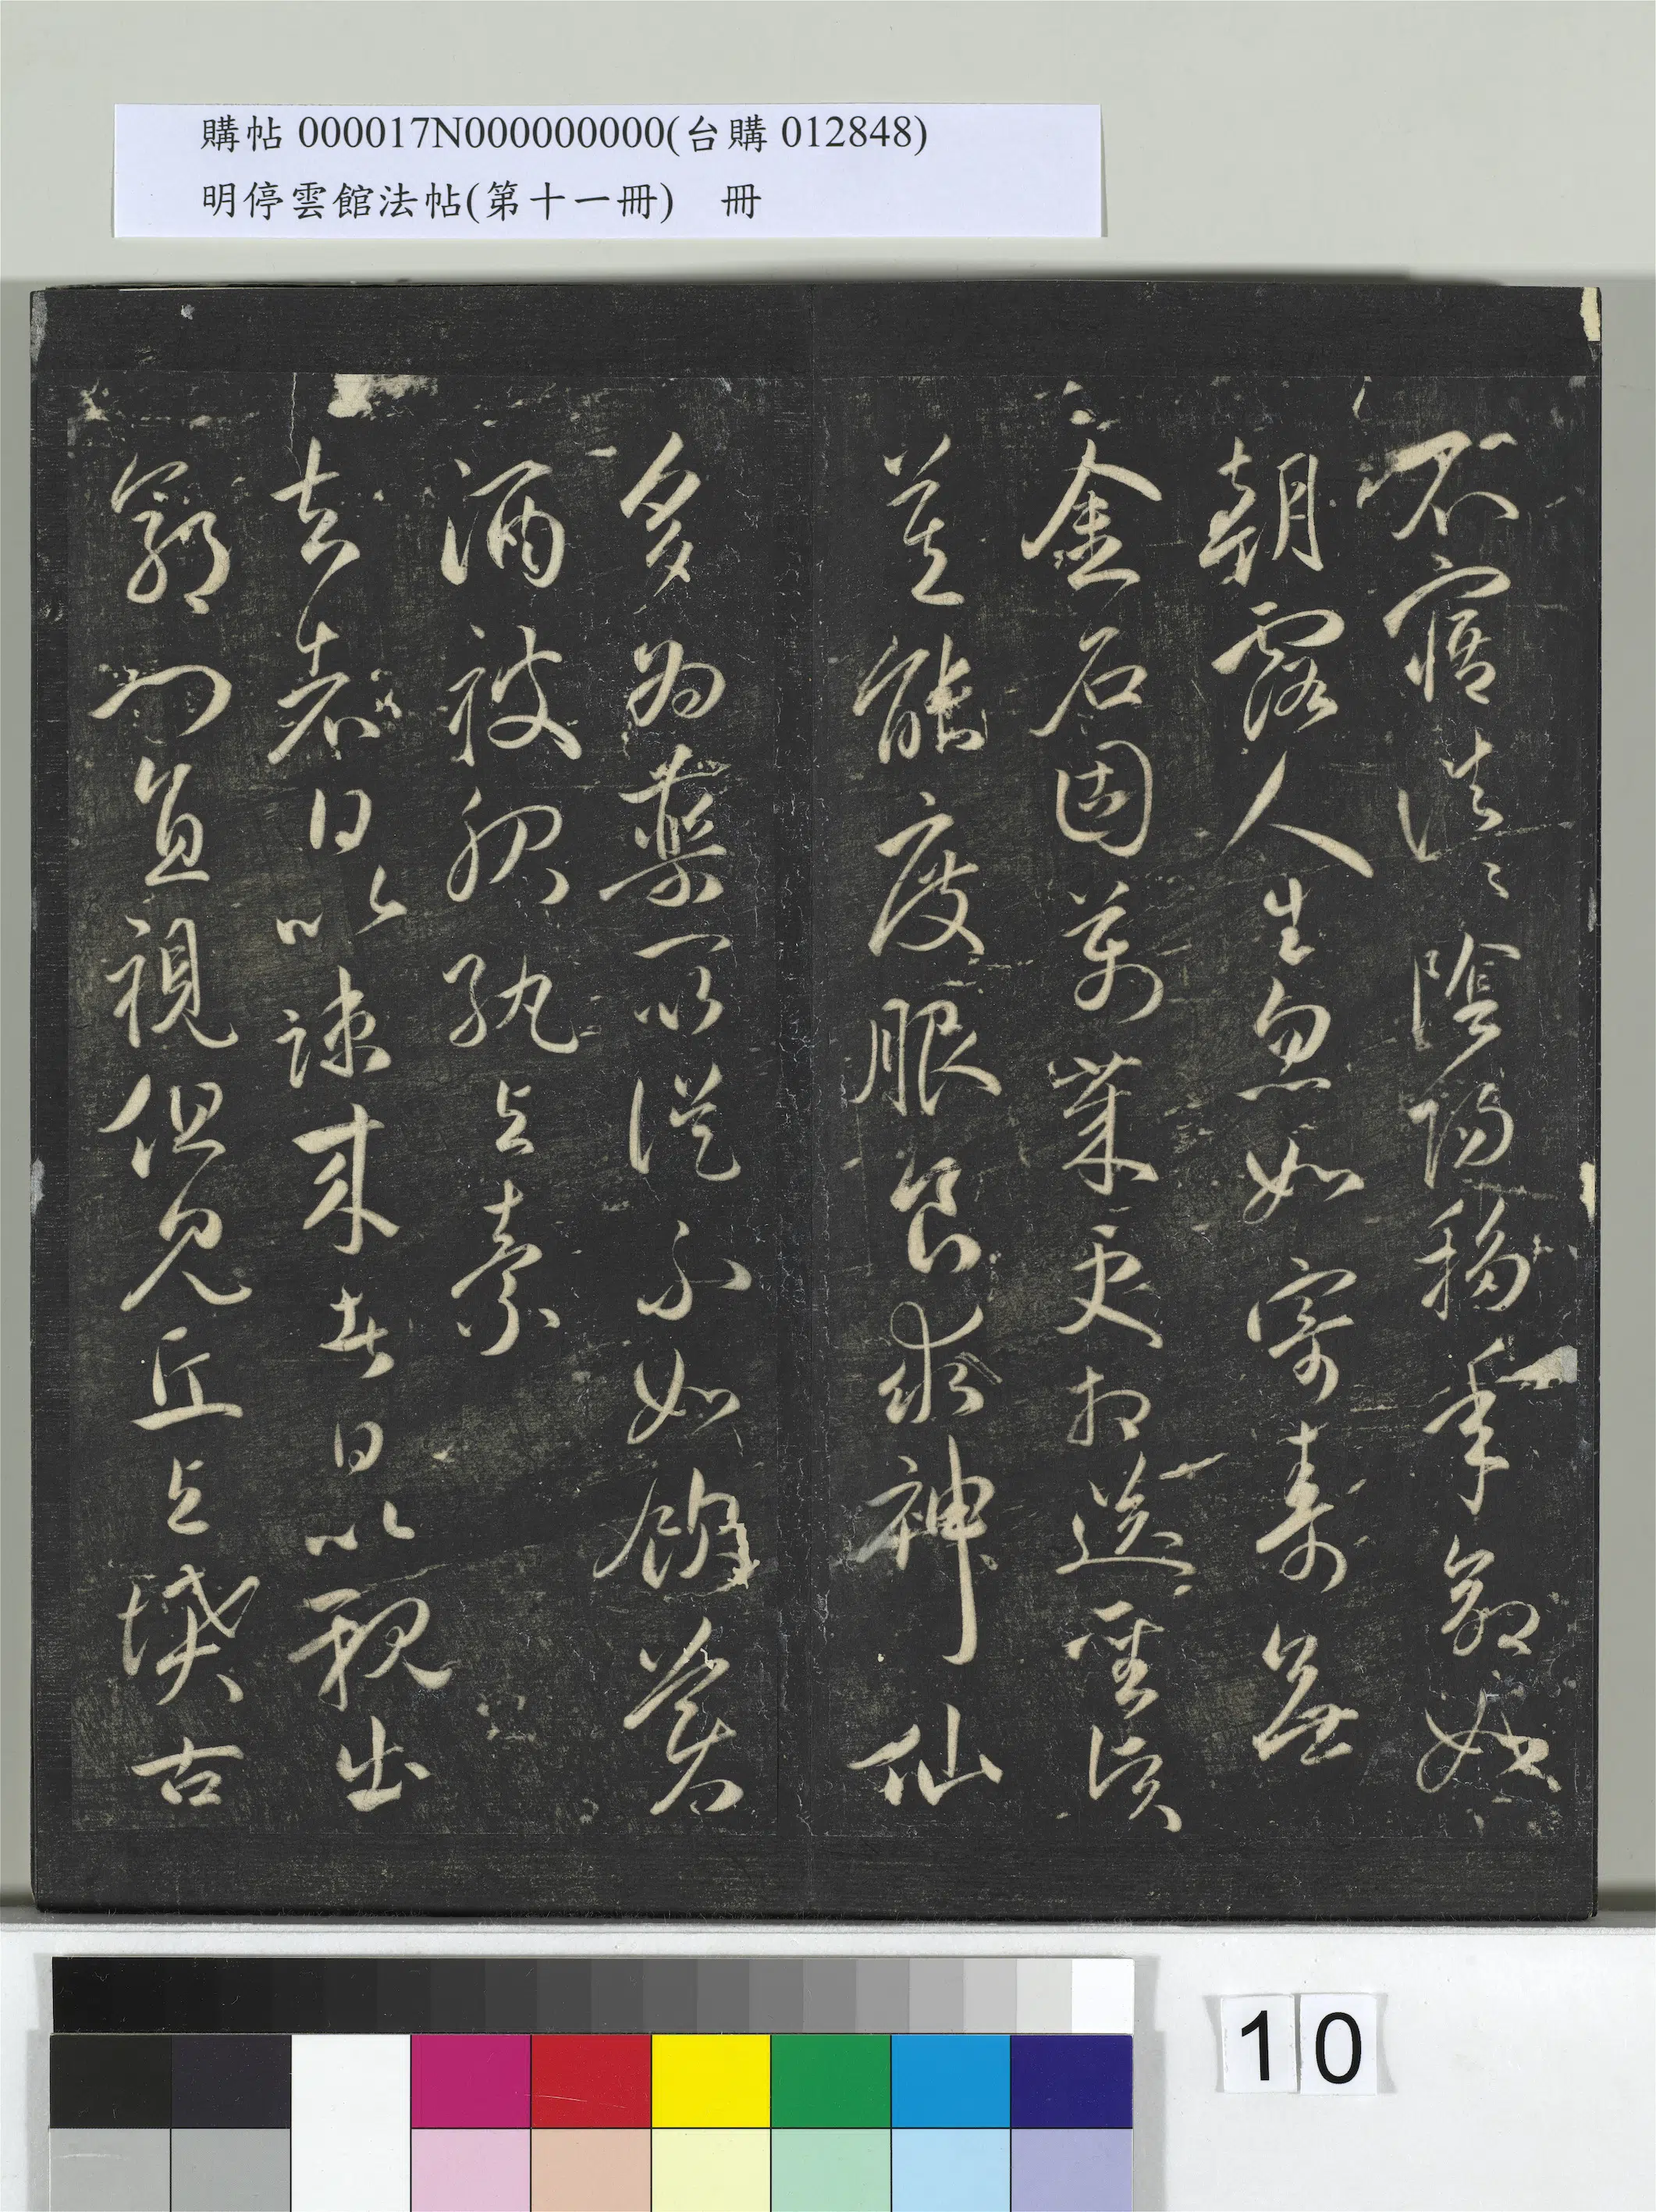 購帖 000017N000000000(台購 012848)
明停雲館法帖(第十一冊)　冊
不寤浩〻陰陽移年命如
朝露人生忽如寄壽無
金石固萬歲更相送聖賢
莫能度服食求神仙
多為藥所誤不如飲美
酒被服紈與素
去者日以疎來者日以親出
郭門直視但見丘與墳古
10